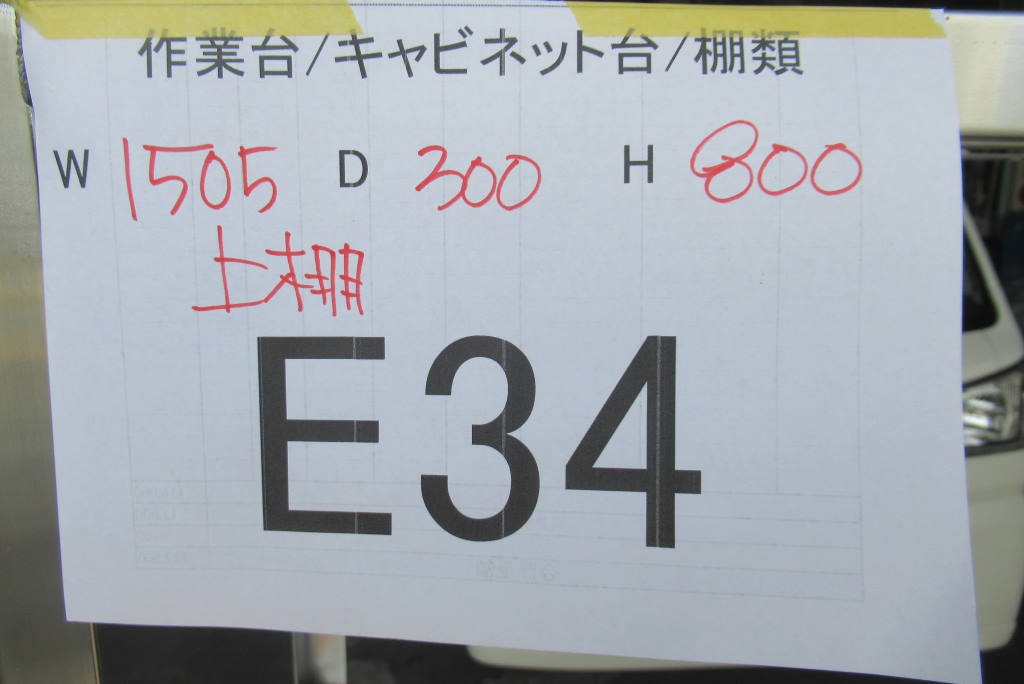 作業台/キャビネット台/棚類
W 1505 D 300 H 800
上棚
E34